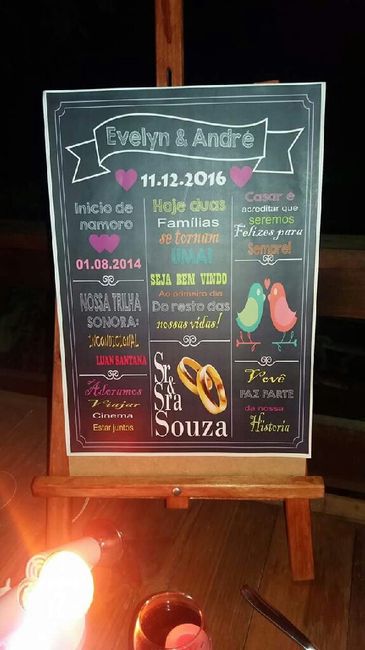 Evelyn & André
11.12.2016
Inicio de
namoro
01.08.2014
NOSSA TRILHA
SONORA:
INCONDICIONAL
LUAN SANTANA
Adoramos
Viajar
Cinema
Estar juntos
Hoje duas
Famílias
se tornam
UMA!
SEJA BEM VINDO
Ao primeiro dia
Do resto das
nossas vidas!
Sr.
&
Sra
Souza
Casar é
acreditar que
seremos
Felizes para
Sempre!
Você
FAZ PARTE
da nossa
Historia